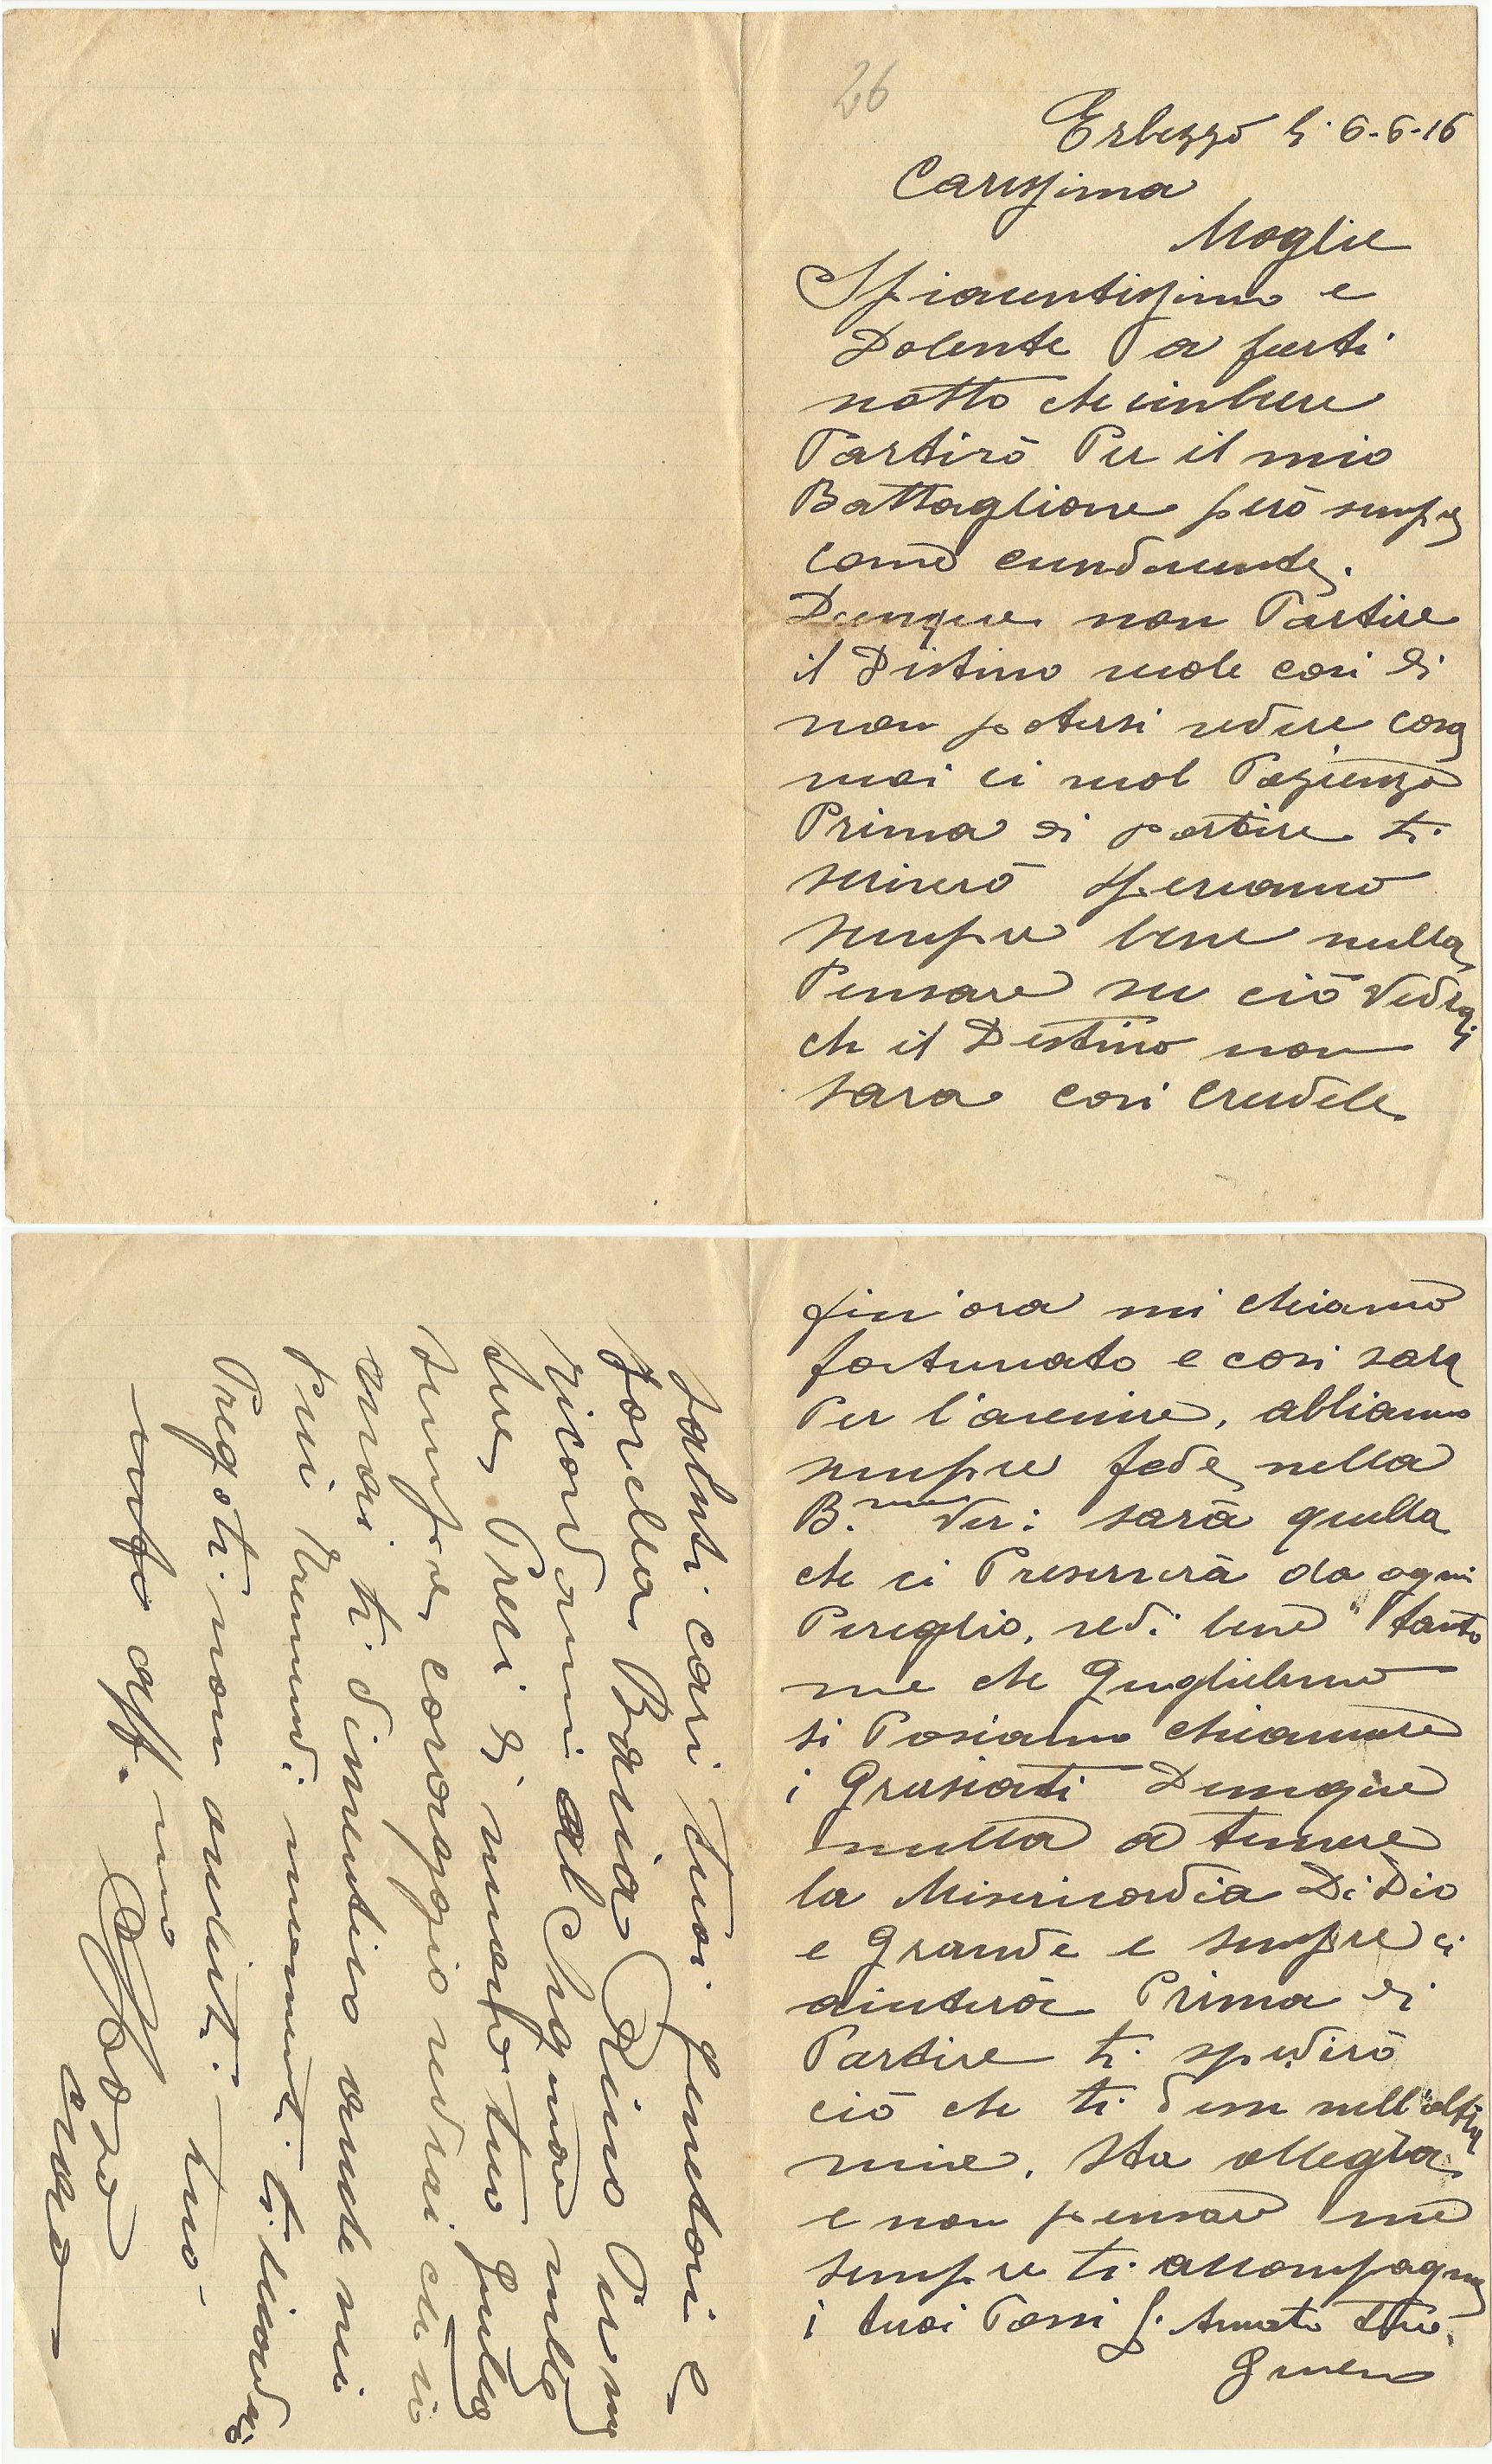 26
Erbezzo li 6-6-16
Carissima
Moglie
Spiacentissimo e
Dolente a farti
notto che in breve
Partirò Per il mio
Battaglione però sempre
come conducente.
Dunque non Partire
il Distino vuole cosi di
non potersi vedere cosa
mai ci vuol Pazienza
Prima di partire ti
scriverò speriamo
sempre bene nulla
Pensare su ciò Vedrai
che il Destino non
sara cosi Crudele
fin'ora mi chiamo
fortunato e cosi sara
Per l'avenire, abbiamo
sempre fede nella
B.ma Ver: sarà quella
che ci Preserverà da ogni
Pereglio, vedi bene tanto
me che Guglielmo
si Posiamo chiamare
i Grasiati Dunque
nulla a temere
la Misericordia Di Dio
e Grande e sempre ci
aiuterà Prima di
Partire ti spedirò
ciò che ti dissi nell'altra
mia. Sta allegra
e non pensare me
sempre ti accompagna
i tuoi Passi
Saluti cari tuoi Genitori e
Sorella Bacia Rino Per me
ricordami al
tue Preci di
sempre coraggio vedrai che io
mai ti dimentico anche nei
piu tremendi momenti ti ricordo
Pregoti non avilirti. Tuo
aff. mo